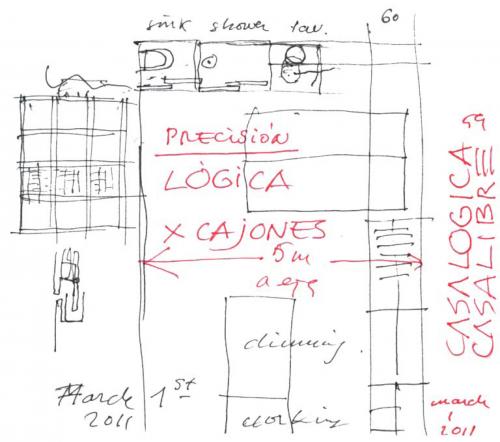 sink shower lav.
60
PRECISIÓN
LÓGICA
X CAJONES
5m
a ejes
dinning
working
March 1st
2011
CASALOGICA 59
CASALIBRE
march
2011